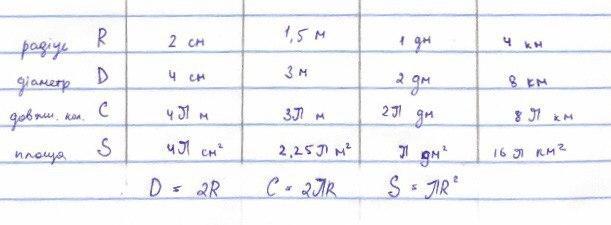 радіус R 2 см 1,5 м 1 дм 4 км
діаметр D 4 см 3 м 2 дм 8 км
довжи. кол. C 4П м 3П м 2П дм 8П км
площа S 4П см² 2,25П м² П дм² 16П км²
D = 2R C = 2ПR S = ПR²